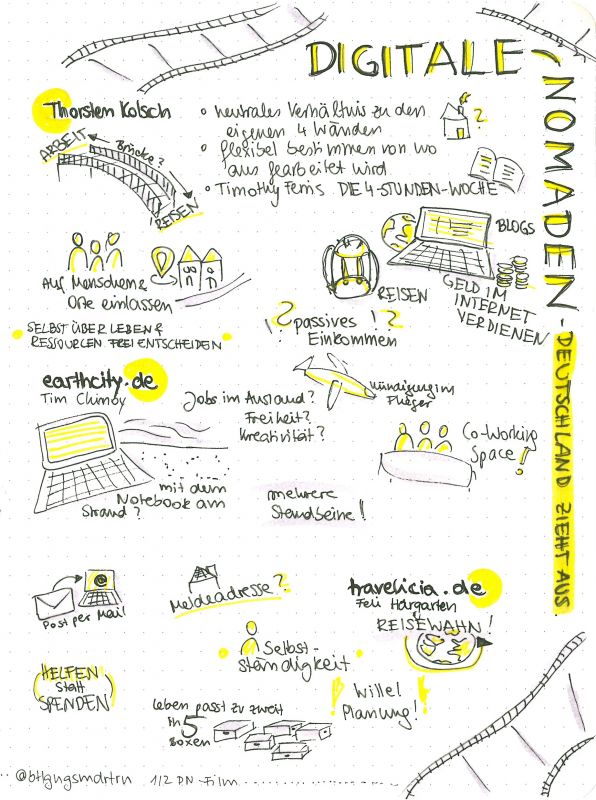 DIGITALE
NOMADEN - DEUTSCHLAND ZIEHT AUS
Thorsten Kolsch
ARBEIT
Brücke?
REISEN
• neutrales Verhältnis zu den
eigenen 4 Wänden
• flexibel bestimmen von wo
aus gearbeitet wird
• Timothy Ferris DIE 4-STUNDEN-WOCHE
?
Auf Menschen &
Orte einlassen
• SELBST ÜBER LEBEN &
RESSOURCEN FREI ENTSCHEIDEN •
REISEN
BLOGS
GELD IM
INTERNET
VERDIENEN
!? passives !?
Einkommen
earthcity.de
Tim Chimoy
Jobs im Ausland?
Freiheit?
Kreativität?
Kündigung im
Flieger
Co-Working
Space!
mit dem
Notebook am
Strand?
mehrere
Standbeine!
@
Post per Mail
Meldeadresse?
travelicia.de
Feli Hargarten
REISEWAHN!
• Selbst-
ständigkeit •
HELFEN
statt
SPENDEN
! Wille!
Planung!
Leben passt zu zweit
in 5
Boxen
@btlgngsmdrtrn 1/2 DN-Film